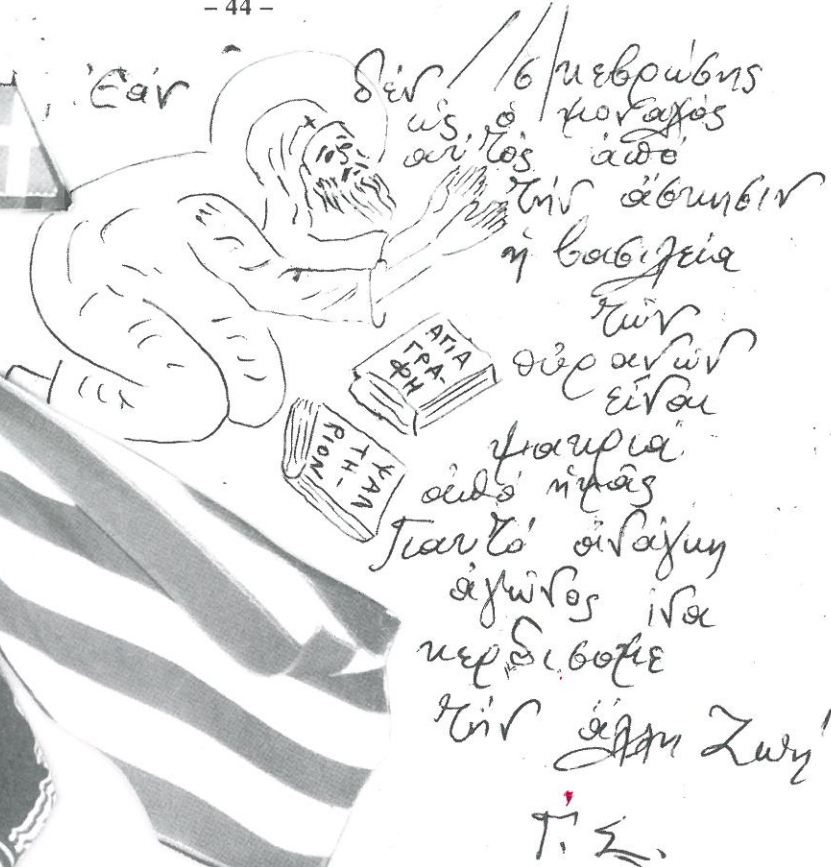 – 44 –
Ἐάν δέν σκεβρώσης
ὡς ὁ μοναχός
αὐτός ἀπό
τήν ἄσκησιν
ἡ βασιλεία
τῶν
οὐρανῶν
εἶναι
μακριά
ἀπό ἡμᾶς
Γιαυτό ἀνάγκη
ἀγῶνος ἵνα
κερδίσομε
τήν ἄλλη Ζωή
Γ. Σ.
ΑΓΙΑ
ΓΡΑ-
ΦΗ
ΨΑΛ
ΤΗ-
ΡΙΟΝ